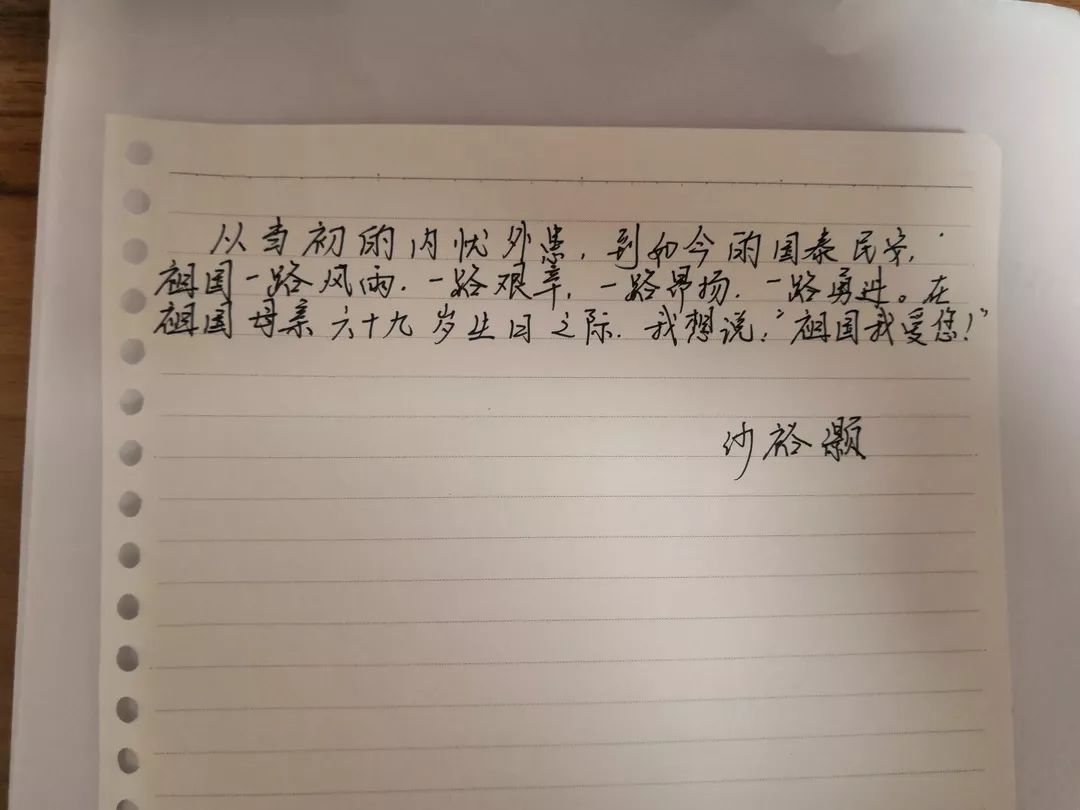 从当初的内忧外患，到如今的国泰民安，
祖国一路风雨，一路艰辛，一路昂扬，一路勇进。在
祖国母亲六十九岁生日之际，我想说：“祖国我爱您！”
沙裕灏